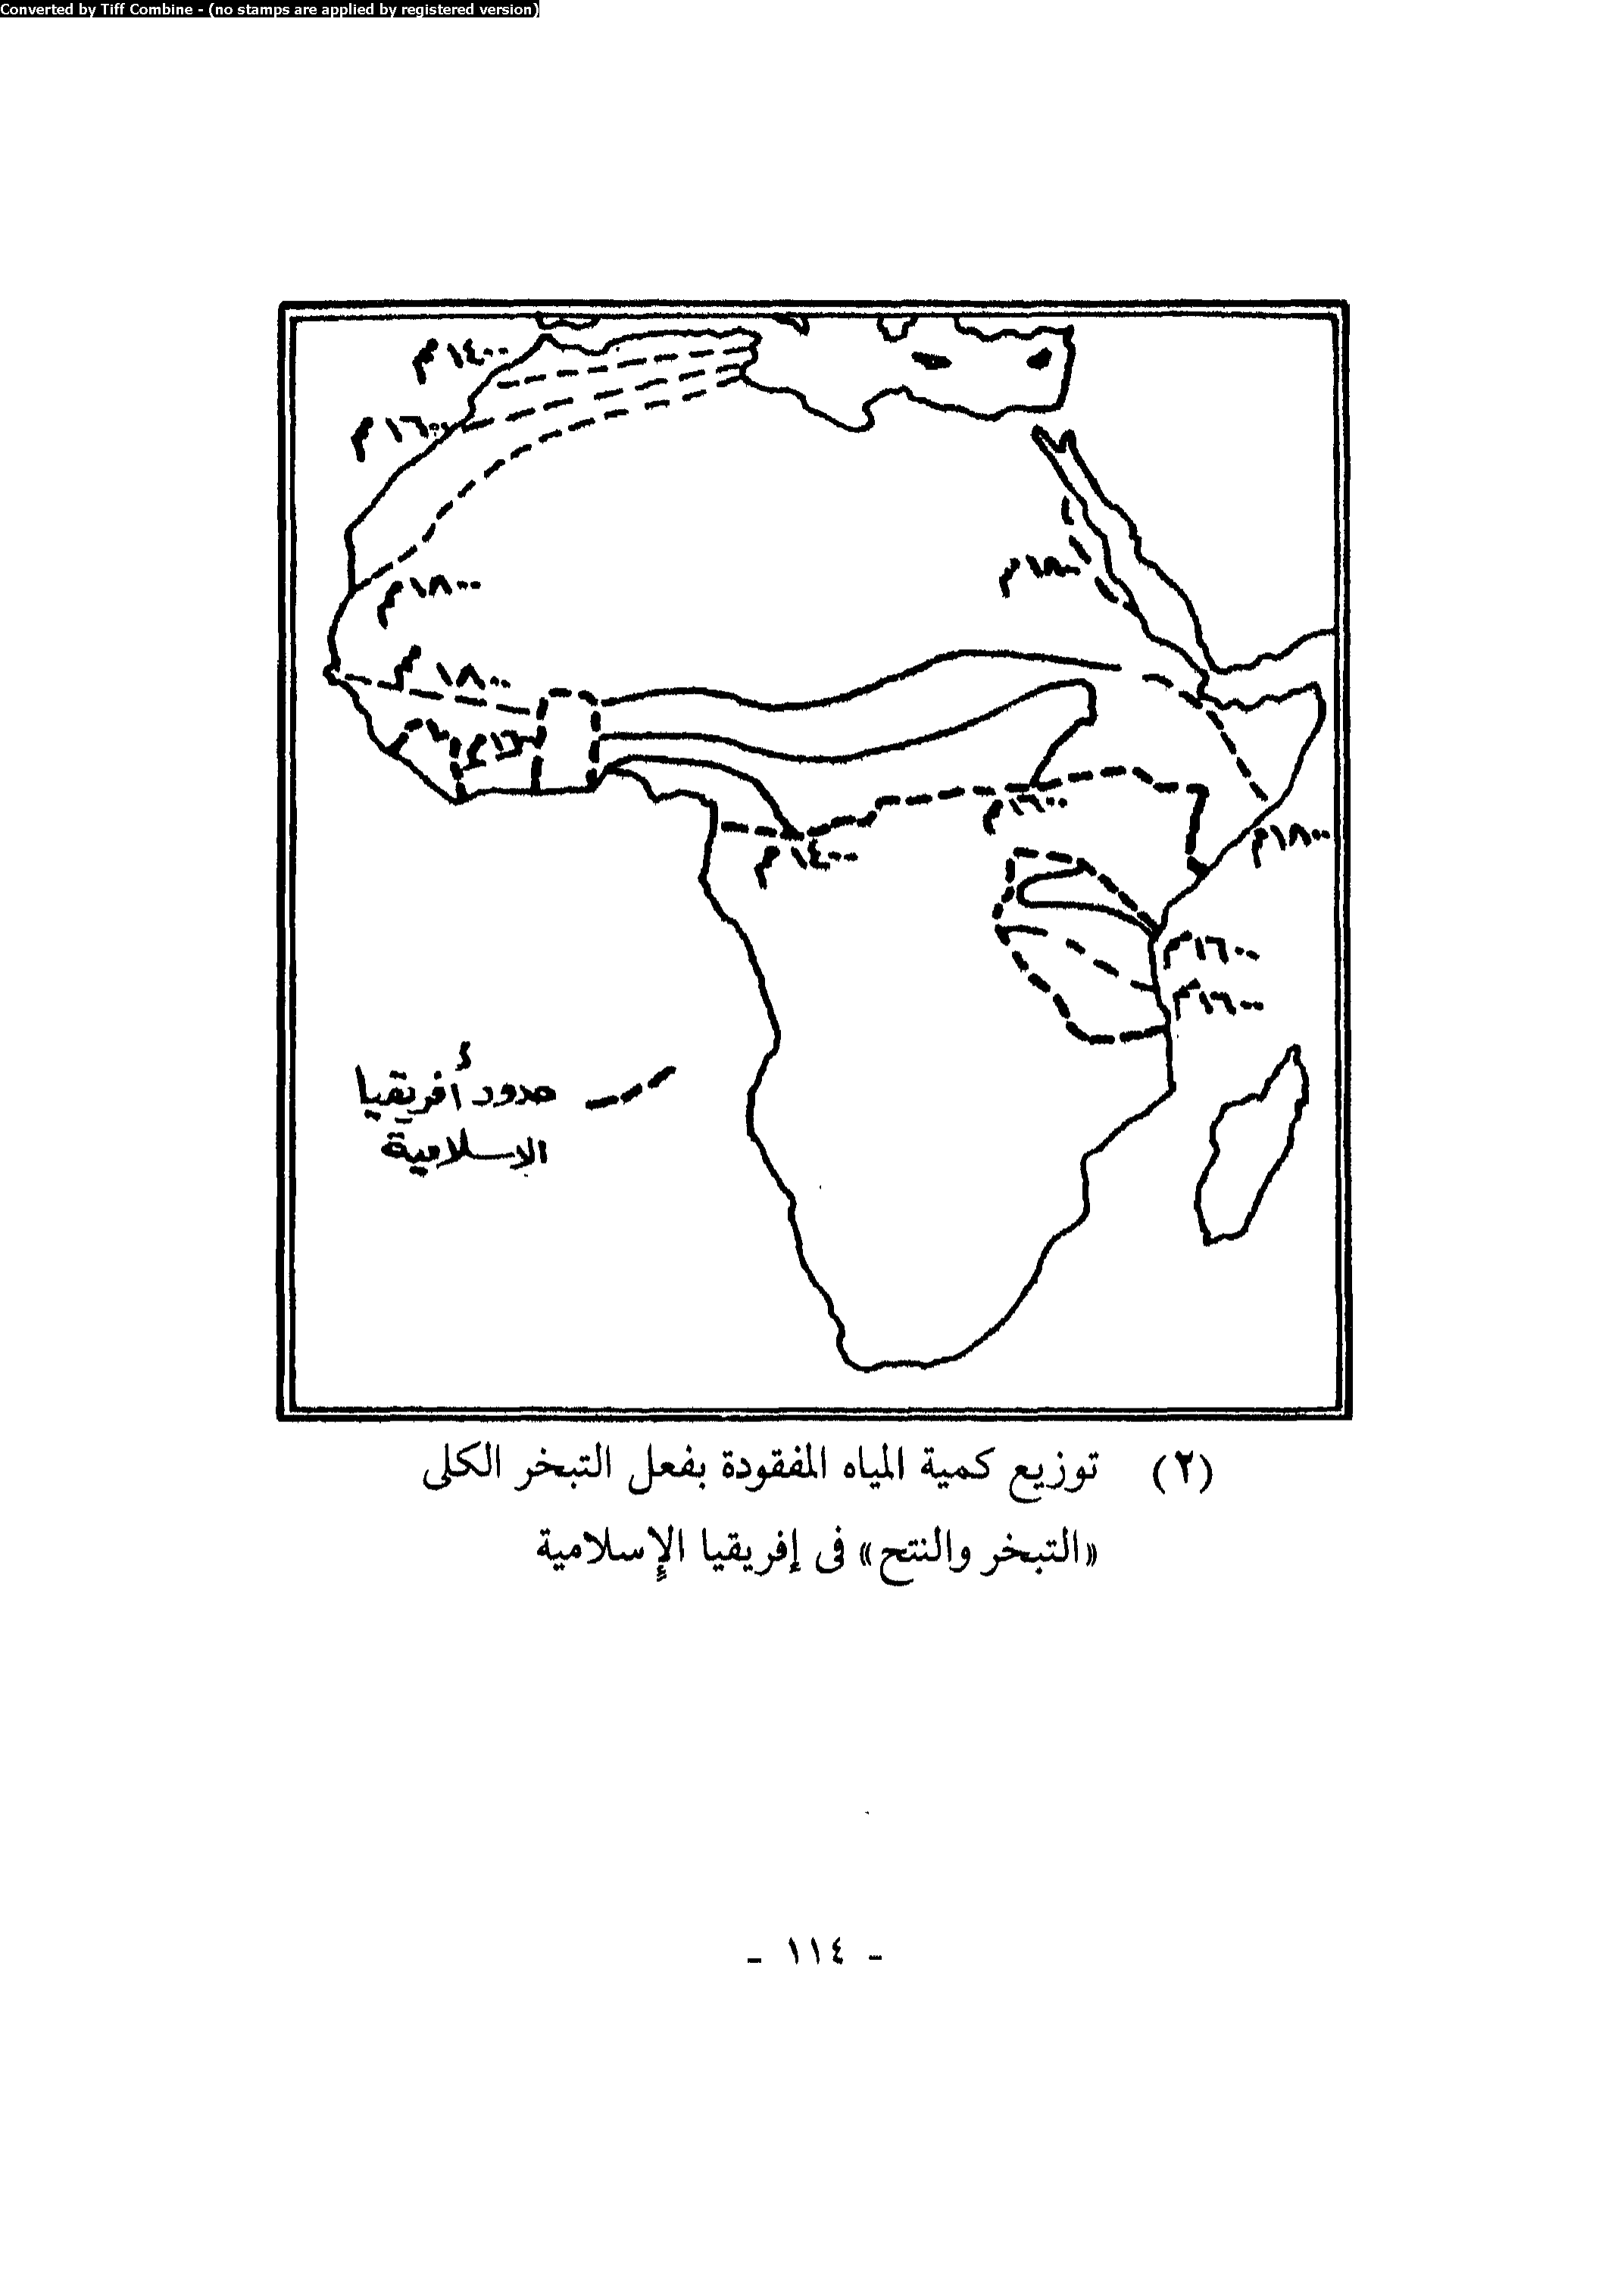 Converted by Tiff Combine - (no stamps are applied by registered version)
١٤٠٠م
١٦٠٠م
١٨٠٠م
١٨٠٠م
١٨٠٠م
١٦٠٠م
١٦٠٠م
١٤٠٠م
١٨٠٠م
١٦٠٠م
١٦٠٠م
حدود أفريقيا
الإسلامية
(٢) توزيع كمية المياه المفقودة بفعل التبخر الكلى
«التبخر والنتح» فى إفريقيا الإسلامية
- ١١٤ -